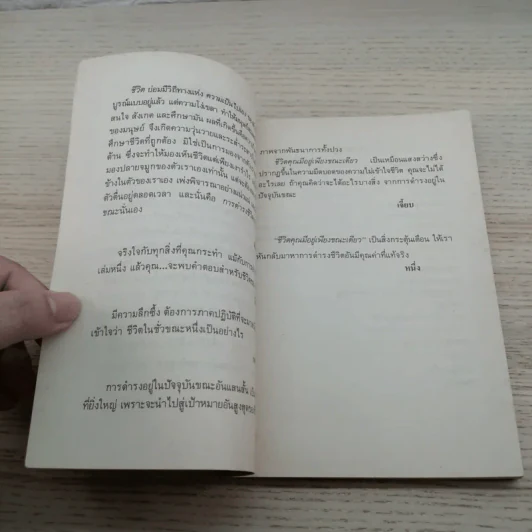 ชีวิต ย่อมมีวิถีทางแห่ง ความเป็นไปอย่าง
บูรณ์แบบอยู่แล้ว แต่ความโง่เขลา ทำให้มนุษย์
สนใจ สังเกต และศึกษามัน ผลที่เกิดขึ้นคือ
ของมนุษย์ จึงเกิดความวุ่นวายและระส่ำระสาย
ศึกษาชีวิตที่ถูกต้อง มิใช่เป็นการมองจาก
ด้าน ซึ่งจะทำให้มองเห็นชีวิตแต่เพียง
มองปลายจมูกของตัวเราเองเท่านั้น แต่
ข้างในตัวของเราเอง เพ่งพิจารณาอย่าง
ตัวตื่นอยู่ตลอดเวลา และนั่นคือ การดำรง
ขณะนั่นเอง
จริงใจกับทุกสิ่งที่คุณกระทำ แม้กับการ
เล่มหนึ่ง แล้วคุณ...จะพบคำตอบสำหรับชีวิต
มีความลึกซึ้ง ต้องการภาคปฏิบัติที่จะ
เข้าใจว่า ชีวิตในชั่วขณะหนึ่งเป็นอย่างไร
การดำรงอยู่ในปัจจุบันขณะอันแสนสั้น
ที่ยิ่งใหญ่ เพราะจะนำไปสู่เป้าหมายอันสูงสุด
ภาพจากพันธนาการทั้งปวง
ชีวิตคุณมีอยู่เพียงขณะเดียว เป็นเหมือนแสงสว่างซึ่ง
ปรากฏขึ้นในความมืดบอดของความไม่เข้าใจชีวิต คุณจะไม่ได้
อะไรเลย ถ้าคุณคิดว่าจะได้อะไรบางสิ่ง จากการดำรงอยู่ใน
ปัจจุบันขณะ
เจี๊ยบ
"ชีวิตคุณมีอยู่เพียงขณะเดียว" เป็นสิ่งกระตุ้นเตือน ให้เรา
หันกลับมาหาการดำรงชีวิตอันมีคุณค่าที่แท้จริง
หนึ่ง